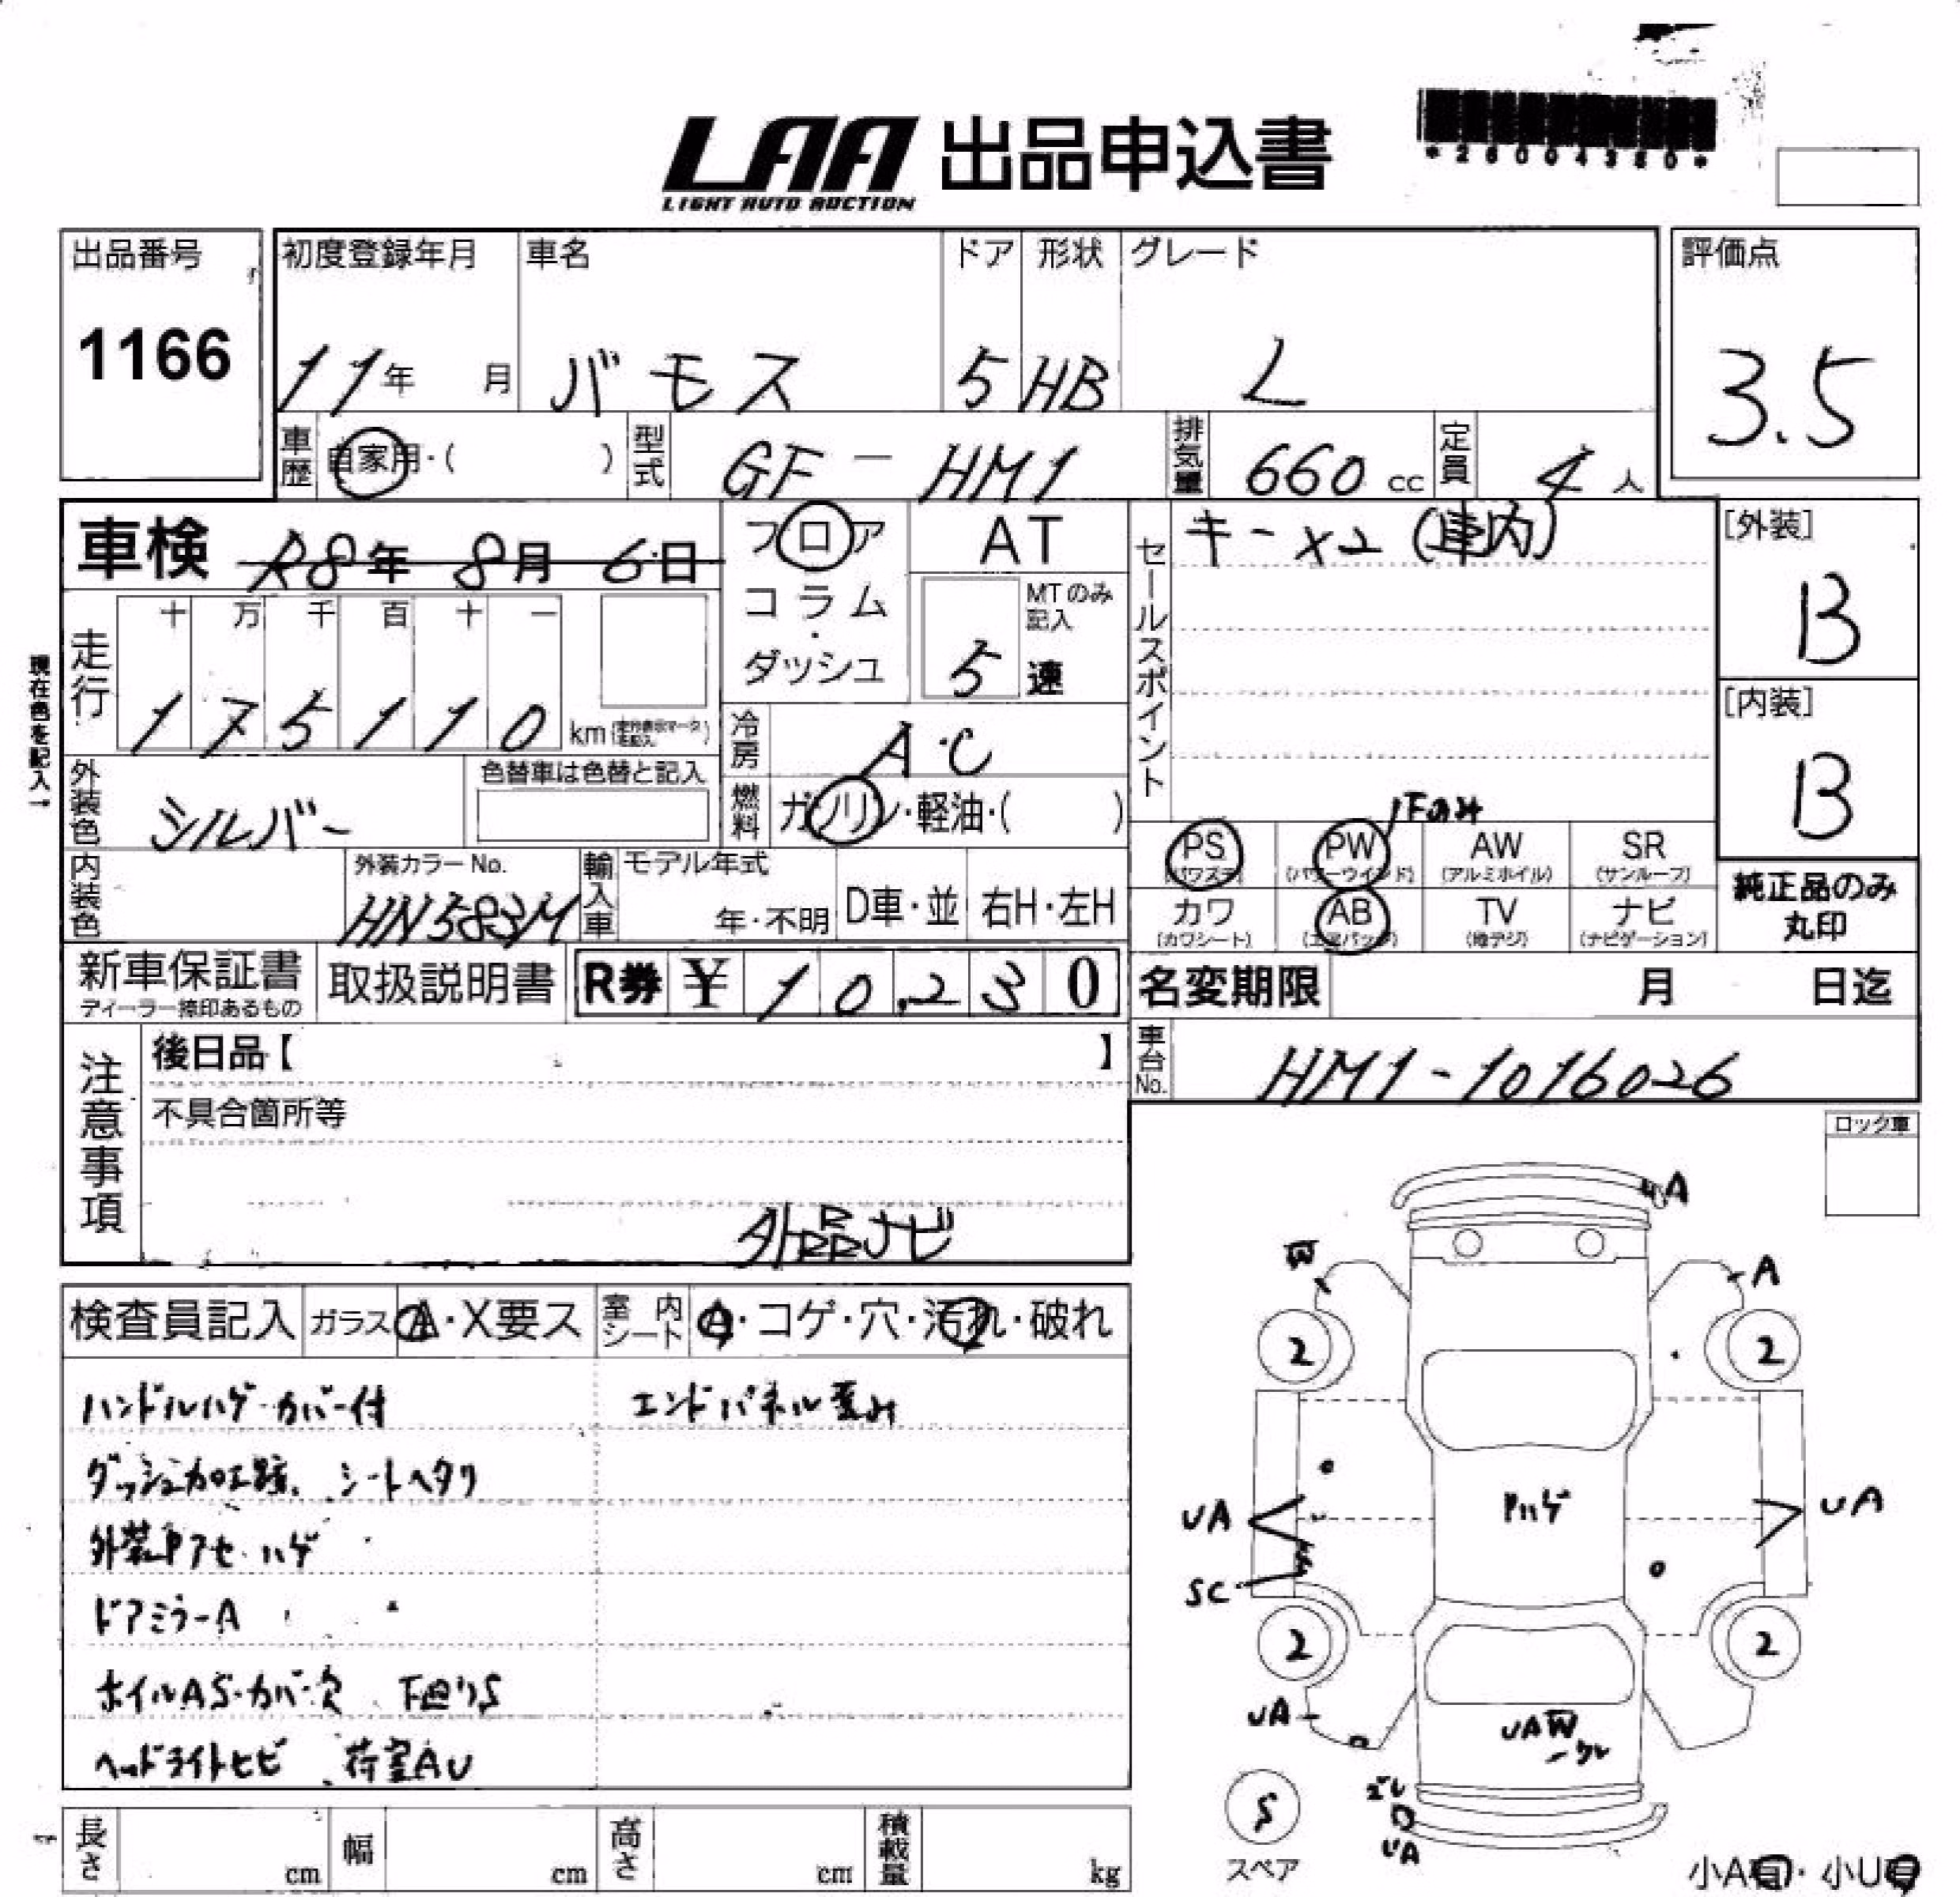 *26004380*
LAA 出品申込書
LIGHT AUTO AUCTION
出品番号
1166
初度登録年月
11年 月
車名
バモス
ドア
5
形状
HB
グレード
L
評価点
3.5
車歴
自家用・( )
型式
GF-HM1
排気量
660 cc
定員
4 人
車検 R8年 8月 6日
フロア
コラム
・
ダッシュ
AT
MTのみ
記入
5 速
セールスポイント
キー×2 (車内)
[外装]
B
[内装]
B
純正品のみ
丸印
現在色を記入→
走行
十 万 千 百 十 一
1 7 5 1 1 0 km
冷房
A・C
燃料
ガソリン・軽油・( )
外装色
シルバー
色替車は色替と記入
内装色
外装カラーNo.
HN583M
輸入車
モデル年式
年・不明
D車・並
右H・左H
Fのみ
PS
(パワステ)
PW
(パワーウインド)
AW
(アルミホイル)
SR
(サンルーフ)
カワ
(カワシート)
AB
(エアバッグ)
TV
(地デジ)
ナビ
(ナビゲーション)
新車保証書
ディーラー捺印あるもの
取扱説明書
R券 ¥ 10,230
名変期限 月 日迄
車台No.
HM1-1016026
注意事項
後日品【 】
不具合箇所等
外品ナビ
ロック車
検査員記入
ガラス
A・X要ス
室内シート
A・コゲ・穴・汚れ・破れ
ハンドルハゲ・カバー付
エンドパネル歪み
ダッシュ加工跡、シートヘタリ
外装Pアセ・ハゲ
ドアミラーA
ホイルAS・カバー欠 下回りS
ヘッドライトヒビ 荷室AU
A
W
A
2
2
UA
Pハゲ
UA
SC
2
2
UA
UAW
ズレ
UA
S
スペア
小A有・小U有
長さ cm
幅 cm
高さ cm
積載量 kg